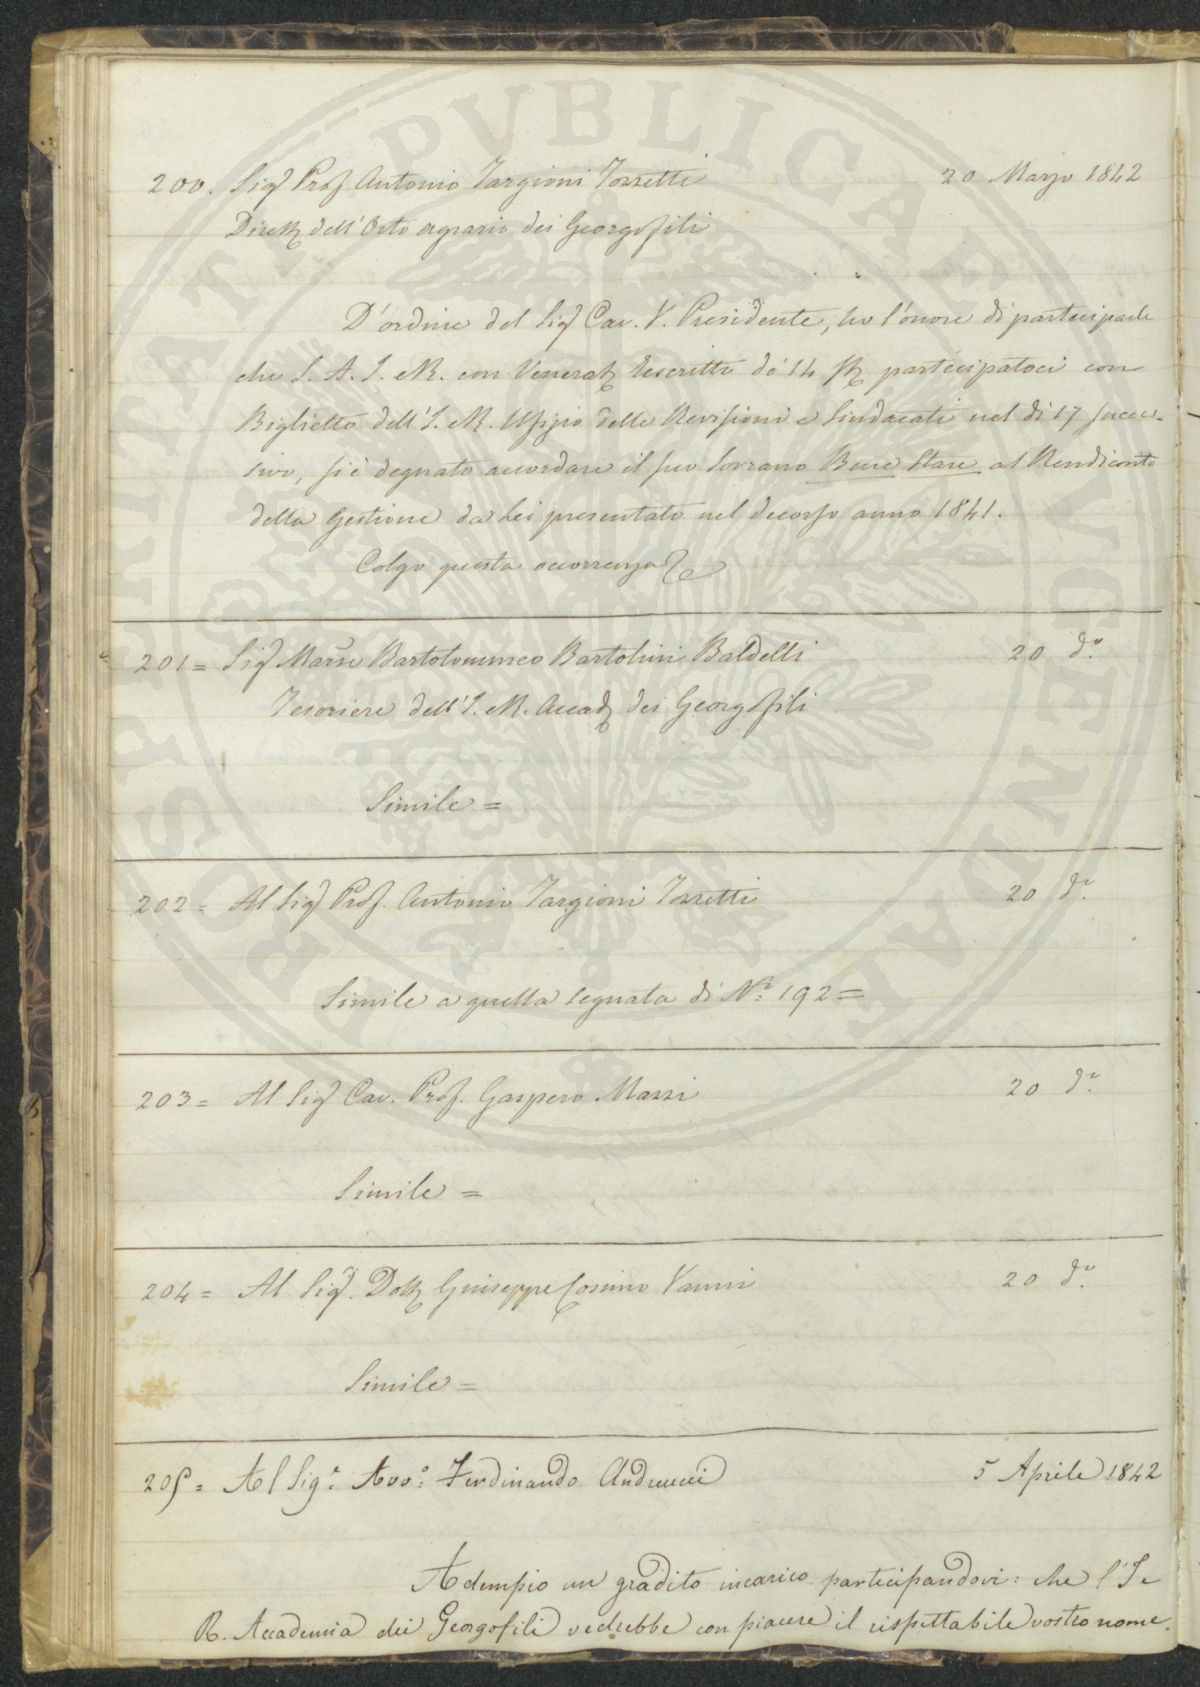 200. Sigr Prof Antonio Targioni Tozzetti 20 Marzo 1842
Dirett dell'Orto agrario dei Georgofili
D'ordine del Sigr Cav. V. Presidente, ho l'onore di parteciparle
che S. A. I. e R. con Venerat Rescritto de' 14 partecipatoci con
Biglietto dell'I. e R. Ufizio delle Revisioni e Sindacati nel dì 17 succes-
sivo, si è degnato accordare il suo Sovrano Bene Stare al Rendiconto
della Gestione da Lei presentato nel decorso anno 1841.
Colgo questa occorrenza
201 = Sigr Marse Bartolommeo Bartolini Baldelli 20 do.
Tesoriere dell'I. e R. Accad dei Georgofili
Simile =
202 = Al Sigr Prof. Antonio Targioni Tozzetti 20 do.
Simile a quella segnata di No. 192 =
203 = Al Sigr Cav. Prof. Gaspero Mazzi 20 do.
Simile =
204 = Al Sigr. Dott Giuseppe Cosimo Vanni 20 do.
Simile =
205 = Al Sigr. Avvo. Ferdinando Andreucci 5 Aprile 1842
Adempio un gradito incarico participandovi: che l'I e
R. Accademia dei Georgofili vedrebbe con piacere il rispettabile vostro nome
PUBLICAE VTENDAE
PROSPERITATI AVGENDAE